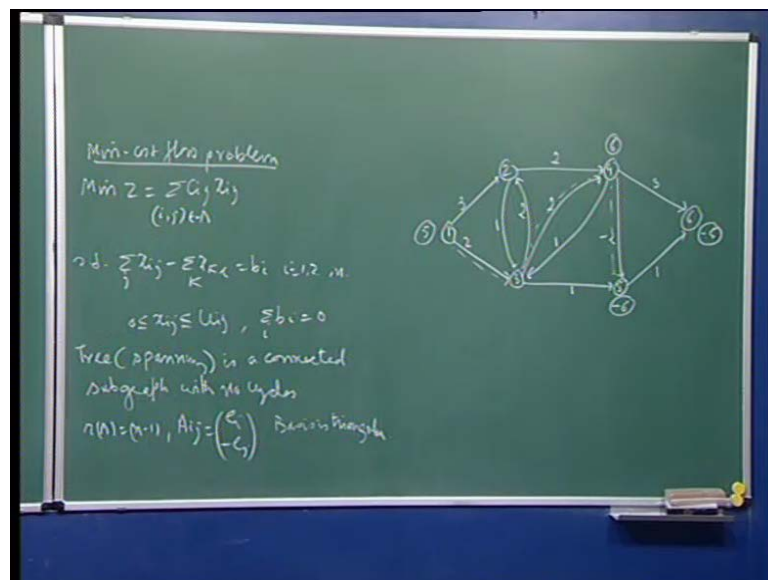 Min-cost flow problem
Min Z = Σ Cij xij
(i,j)∈A
s.t. Σ xij - Σ xki = bi i=1,2, n.
j K
0 ≤ xij ≤ Uij , Σ bi = 0
i
Tree (spanning) is a connected
subgraph with no cycles
r(A) = (n-1), Aij = (ei -ej) Basis is triangular
6
2 2 4
3 2 3
5 1 1 2 1 -2 6 -5
2 1
3 1 5
-6